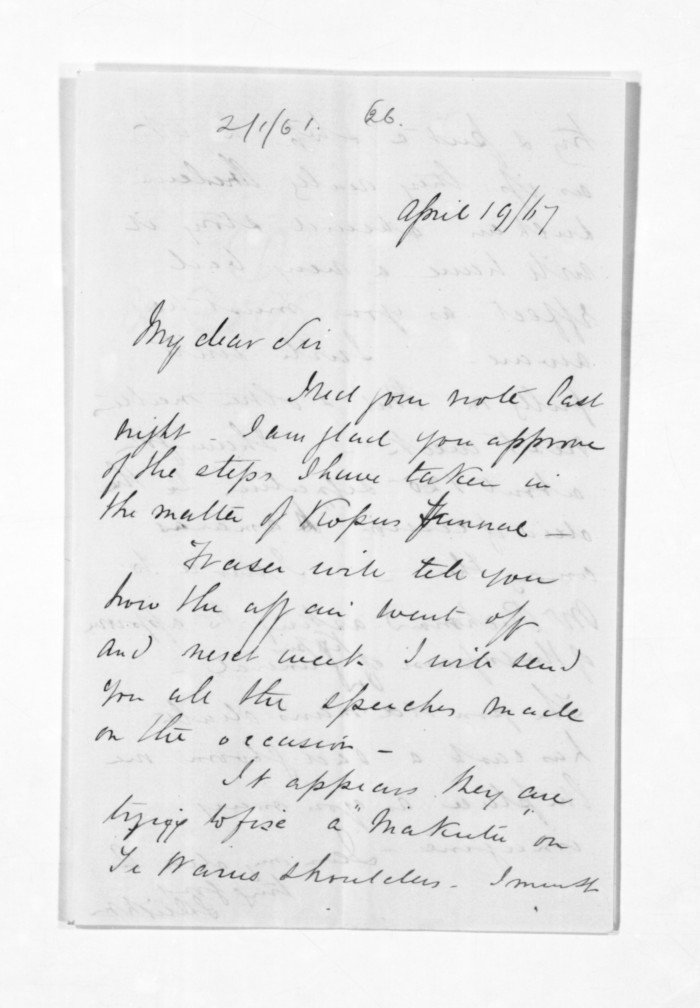 2/1/61. 26.
April 19/67
My dear Sir
I recd your note last
night I am glad you approve
of the steps I have taken in
the matter of Kopus funnal —
Fraser will tell you
how the affair went off
and next week I will send
you all the speeches made
on the occasion —
It appears they are
trying to fix a "Makutu" on
Te Wairus shoulders. I must